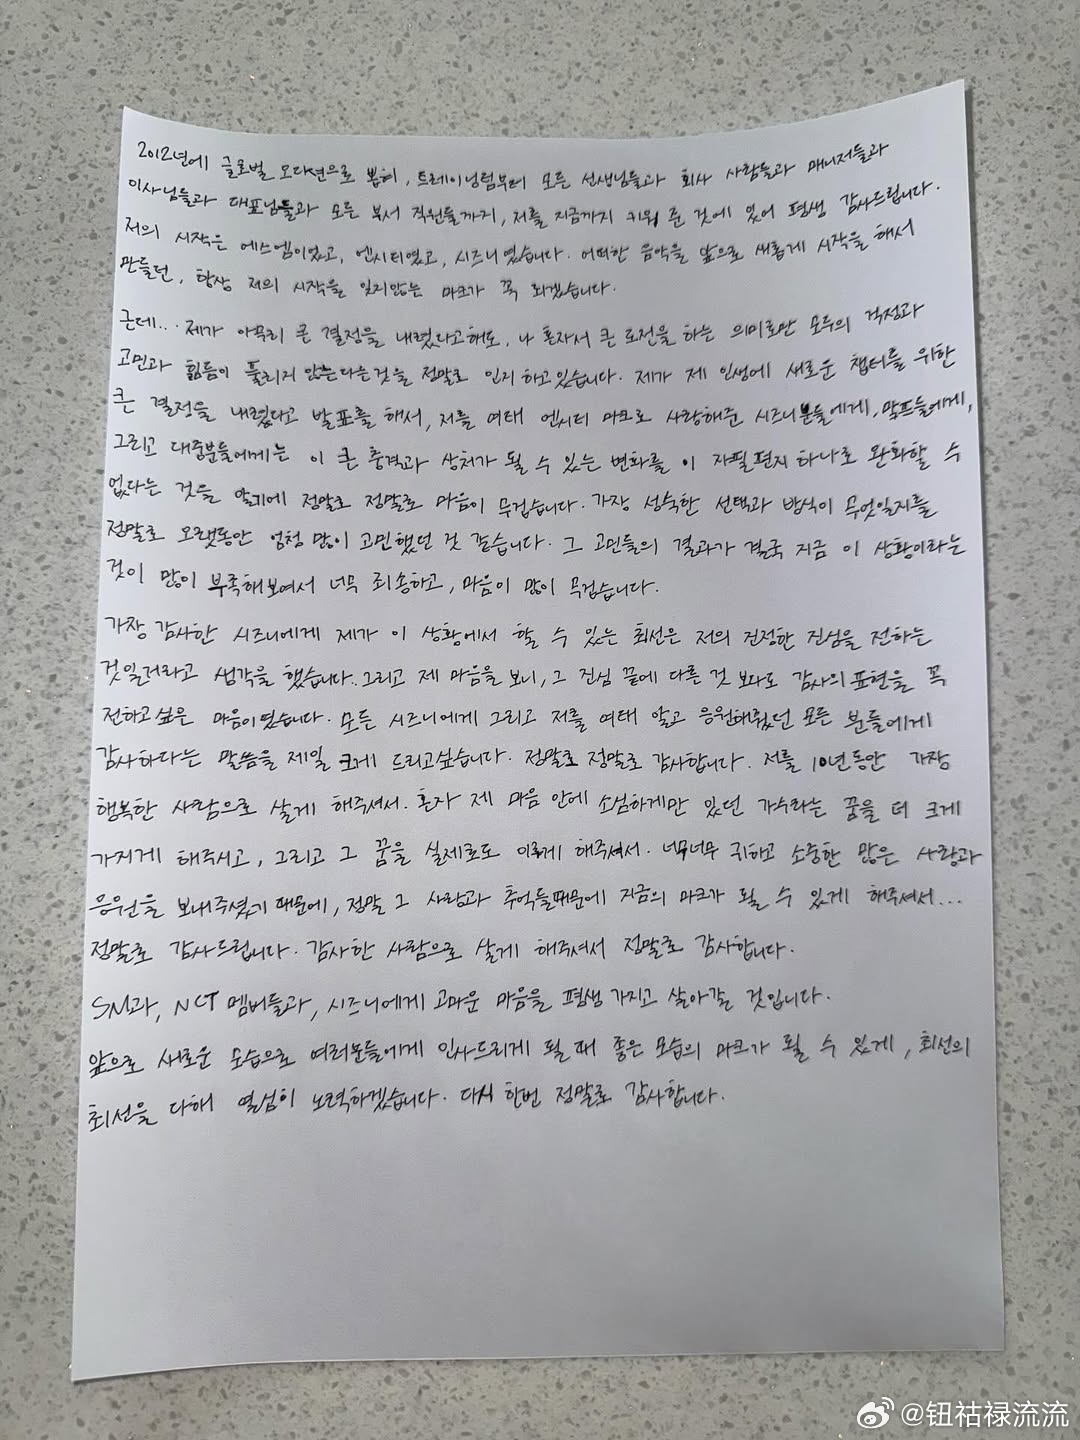 2012년에 글로벌 오디션으로 뽑히, 트레이닝팀부터 모든 선생님들과 회사 사람들과 매니저들과
이사님들과 대표님들과 모든 부서 직원들까지, 저를 지금까지 키워 준 것에 있어 평생 감사드립니다.
저의 시작은 에스엠이었고, 엔시티였고, 시즈니였습니다. 어떠한 음악을 앞으로 새롭게 시작을 해서
만들던, 항상 저의 시작을 잊지않는 마크가 꼭 되겠습니다.
근데... 제가 아무리 큰 결정을 내렸다고해도, 나 혼자서 큰 도전을 하는 의미로만 모두의 걱정과
고민과 힘듦이 풀리지 않는다는것을 정말로 인지하고있습니다. 제가 제 인생에 새로운 챕터를 위한
큰 결정을 내렸다고 발표를 해서, 저를 여태 엔시티 마크로 사랑해준 시즈니분들에게, 막프들에게,
그리고 대중분들에게는 이 큰 충격과 상처가 될 수 있는 변화를 이 자필편지 하나로 완화할 수
없다는 것을 알기에 정말로 정말로 마음이 무겁습니다. 가장 성숙한 선택과 방식이 무엇일지를
정말로 오랫동안 엄청 많이 고민했던 것 같습니다. 그 고민들의 결과가 결국 지금 이 상황이라는
것이 많이 부족해보여서 너무 죄송하고, 마음이 많이 무겁습니다.
가장 감사한 시즈니에게 제가 이 상황에서 할 수 있는 최선은 저의 진정한 진심을 전하는
것일거라고 생각을 했습니다. 그리고 제 마음을 보니, 그 진심 끝에 다른 것 보다도 감사의 표현을 꼭
전하고싶은 마음이였습니다. 모든 시즈니에게 그리고 저를 여태 알고 응원해줬던 모든 분들에게
감사하다는 말씀을 제일 크게 드리고싶습니다. 정말로 정말로 감사합니다. 저를 10년동안 가장
행복한 사람으로 살게 해주셔서. 혼자 제 마음 안에 소심하게만 있던 가수라는 꿈을 더 크게
가지게 해주시고, 그리고 그 꿈을 실제로도 이루게 해주셔서. 너무너무 귀하고 소중한 많은 사랑과
응원을 보내주셨기 때문에, 정말 그 사랑과 추억들때문에 지금의 마크가 될 수 있게 해주셔서...
정말로 감사드립니다. 감사한 사람으로 살게 해주셔서 정말로 감사합니다.
SM과, NCT 멤버들과, 시즈니에게 고마운 마음을 평생 가지고 살아갈 것입니다.
앞으로 새로운 모습으로 여러분들에게 인사드리게 될 때 좋은 모습의 마크가 될 수 있게, 최선의
최선을 다해 열심히 노력하겠습니다. 다시 한번 정말로 감사합니다.
@钮祜禄流流